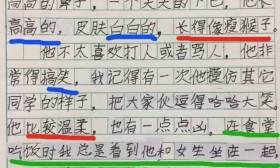 高高的鼻子，一个尖尖的下巴，个子
高高的，皮肤白白的，长得像瘦猴子。
他不太喜欢打人或者骂人，他非
常得搞笑，我记得有一次他模仿其它
同学的样子，把大家伙逗得哈哈大笑
他比较温柔，也有一点点凶。在食堂
吃饭时我总是看到他和女生坐在一起